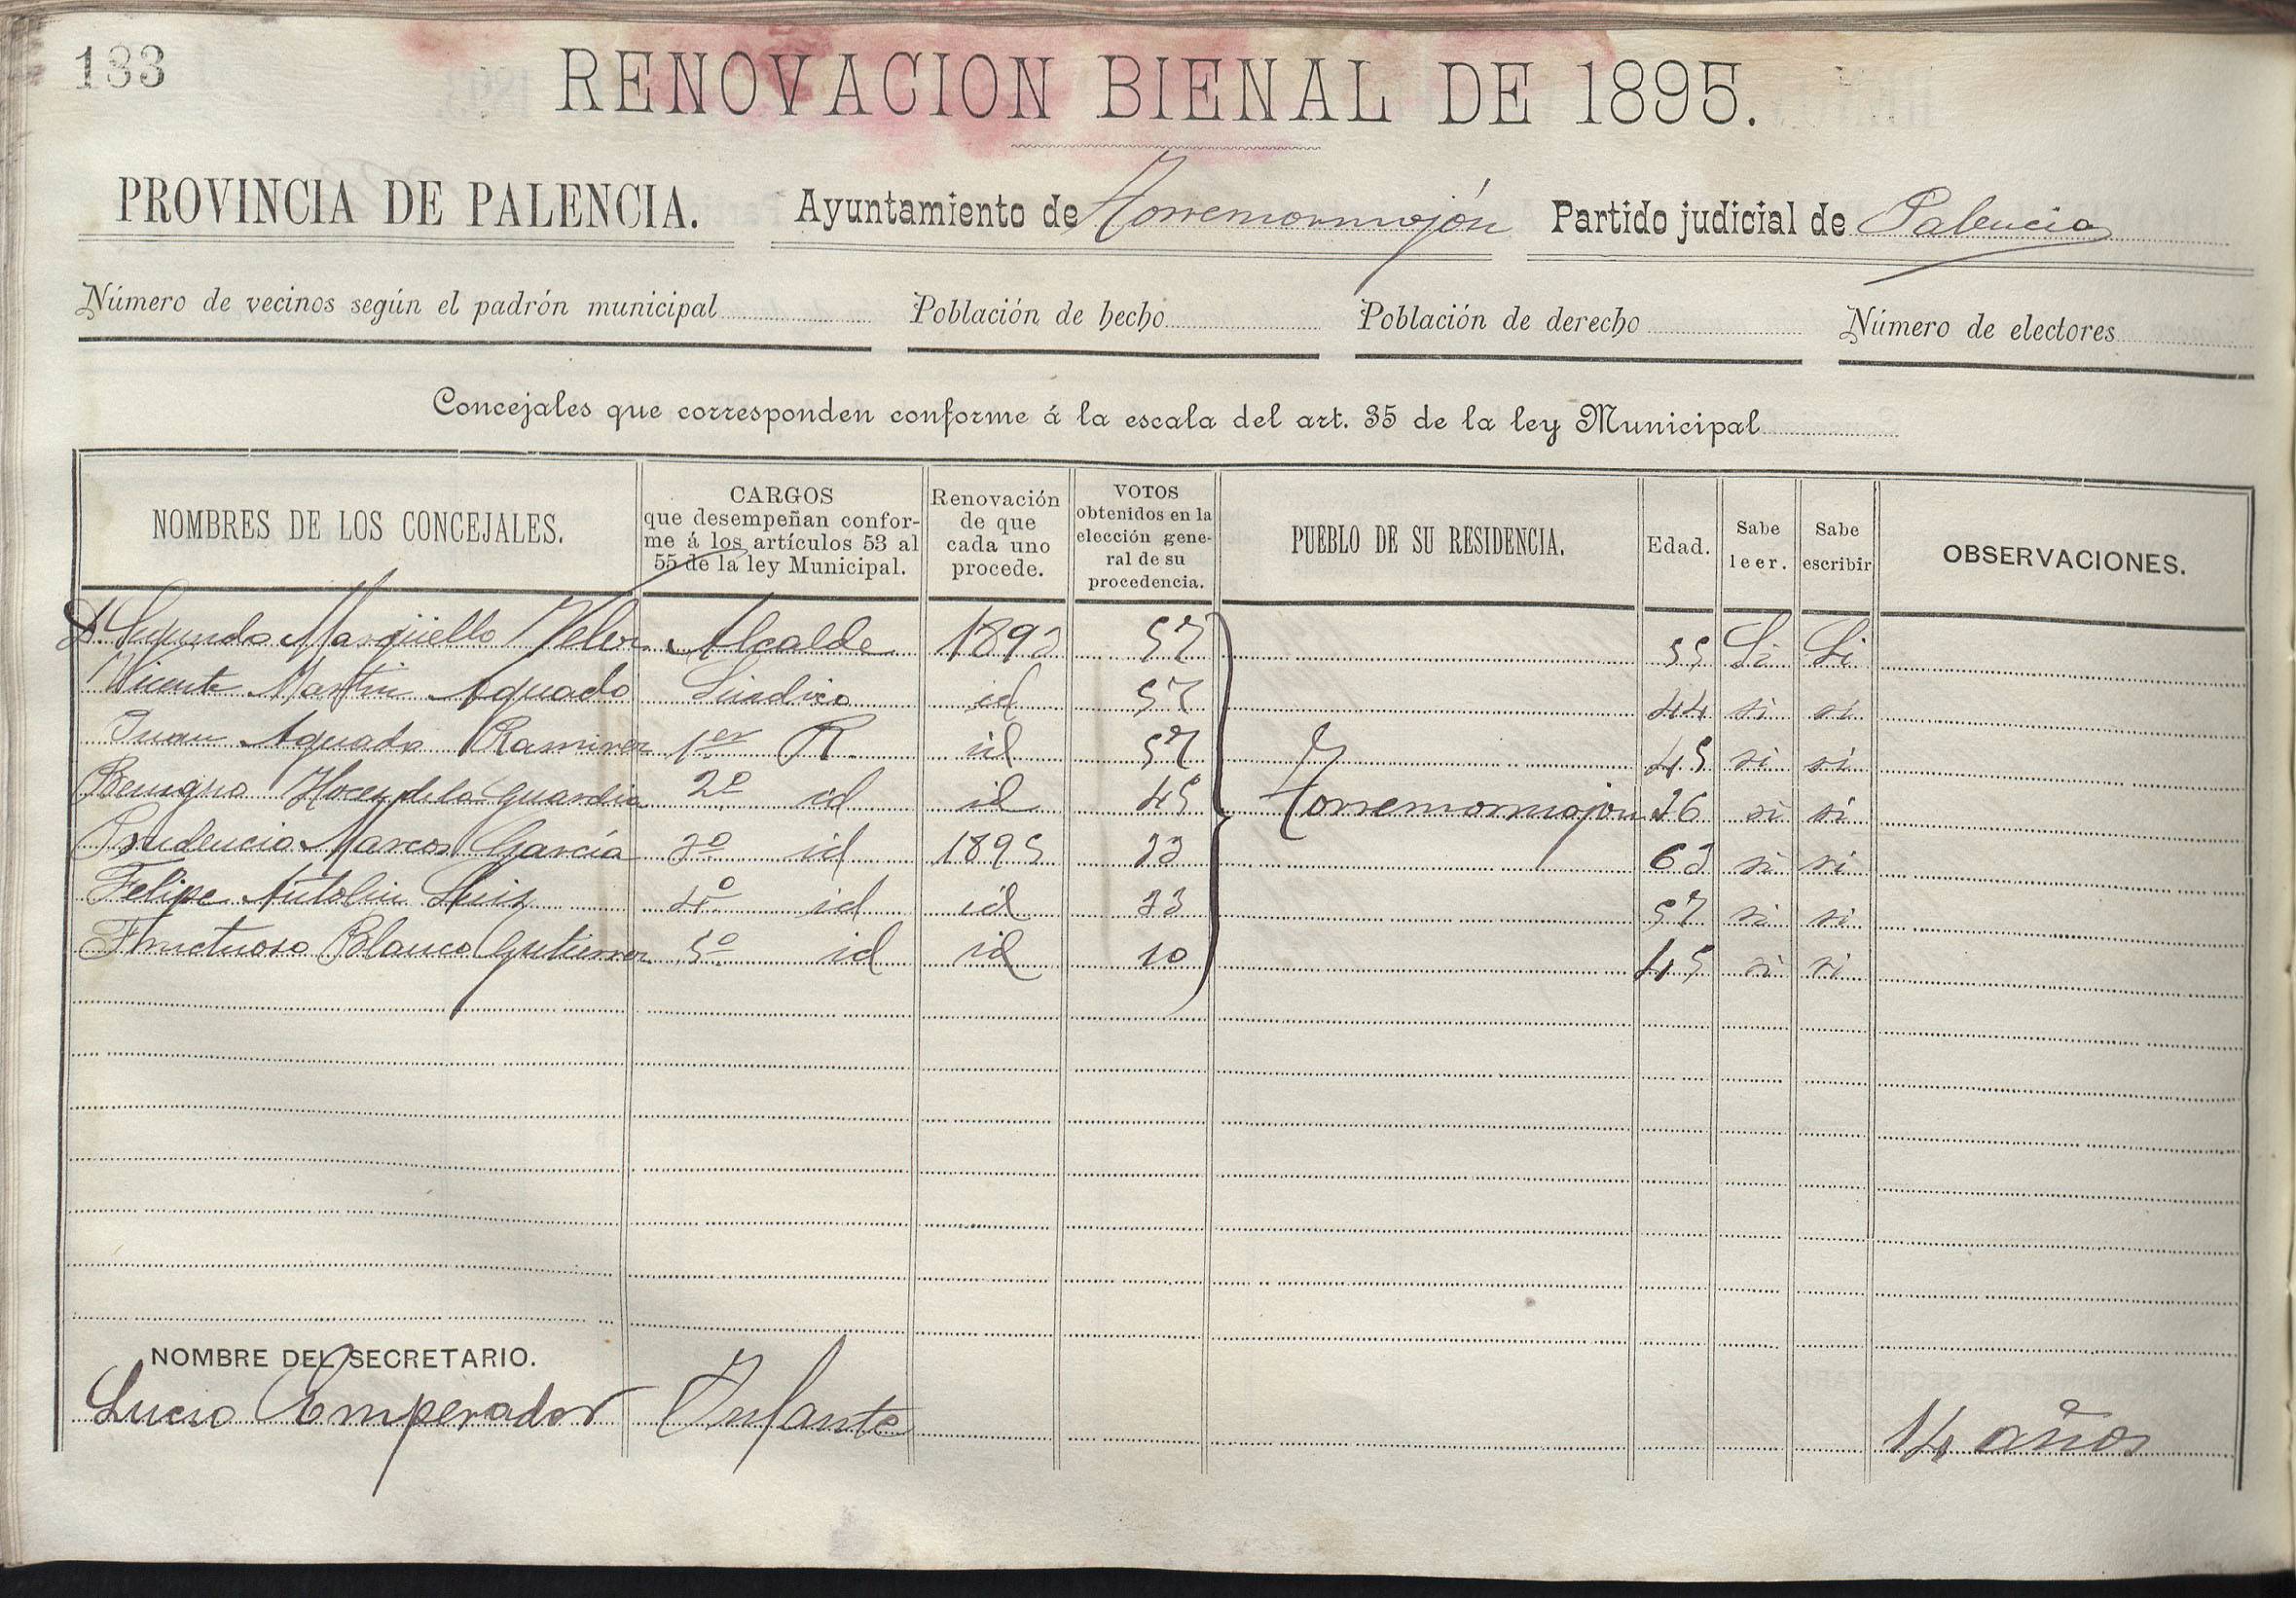 133
RENOVACION BIENAL DE 1895.
PROVINCIA DE PALENCIA. Ayuntamiento de Torremormojón Partido judicial de Palencia
Número de vecinos según el padrón municipal Población de hecho Población de derecho Número de electores
Concejales que corresponden conforme á la escala del art. 35 de la ley Municipal
NOMBRES DE LOS CONCEJALES. CARGOS que desempeñan confor- me á los artículos 53 al 55 de la ley Municipal. Renovación de que cada uno procede. VOTOS obtenidos en la elección gene- ral de su procedencia. PUEBLO DE SU RESIDENCIA. Edad. Sabe leer. Sabe escribir OBSERVACIONES.
D. Segundo Margüello Alcalde 1893 57 55 Si Si
Vicente Martin Aguado Sindico id 57 44 si si
Juan Aguado Ramirez 1er R. id 57 45 si si
Benigno Hoces de la Guardia 2º id id 45 Torremormojon 36 si si
Prudencio Marcos García 3º id 1895 33 63 si si
Felipe Antolin Ruiz 4º id id 33 57 si si
Fructuoso Blanco Gutierrez 5º id id 10 45 si si
NOMBRE DEL SECRETARIO.
Lucio Emperador Infante 14 años